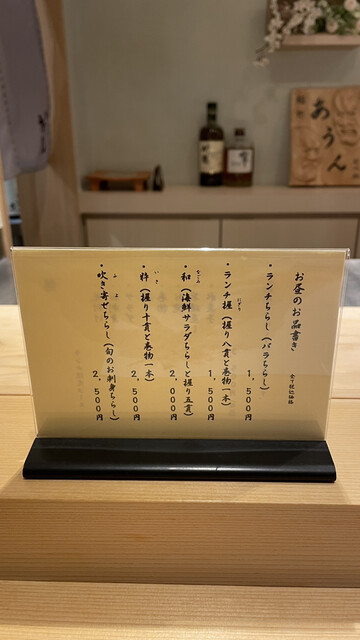 お昼のお品書き
全て税込価格
・ランチちらし(バラちらし)
1,500円
・ランチ握(握り八貫と巻物一本)
にぎり
1,500円
・和(海鮮サラダちらしと握り五貫)
なごみ
2,000円
・粋(握り十貫と巻物一本)
いき
2,500円
・吹き寄せちらし(旬のお刺身ちらし)
ふ よ
2,500円
あうん